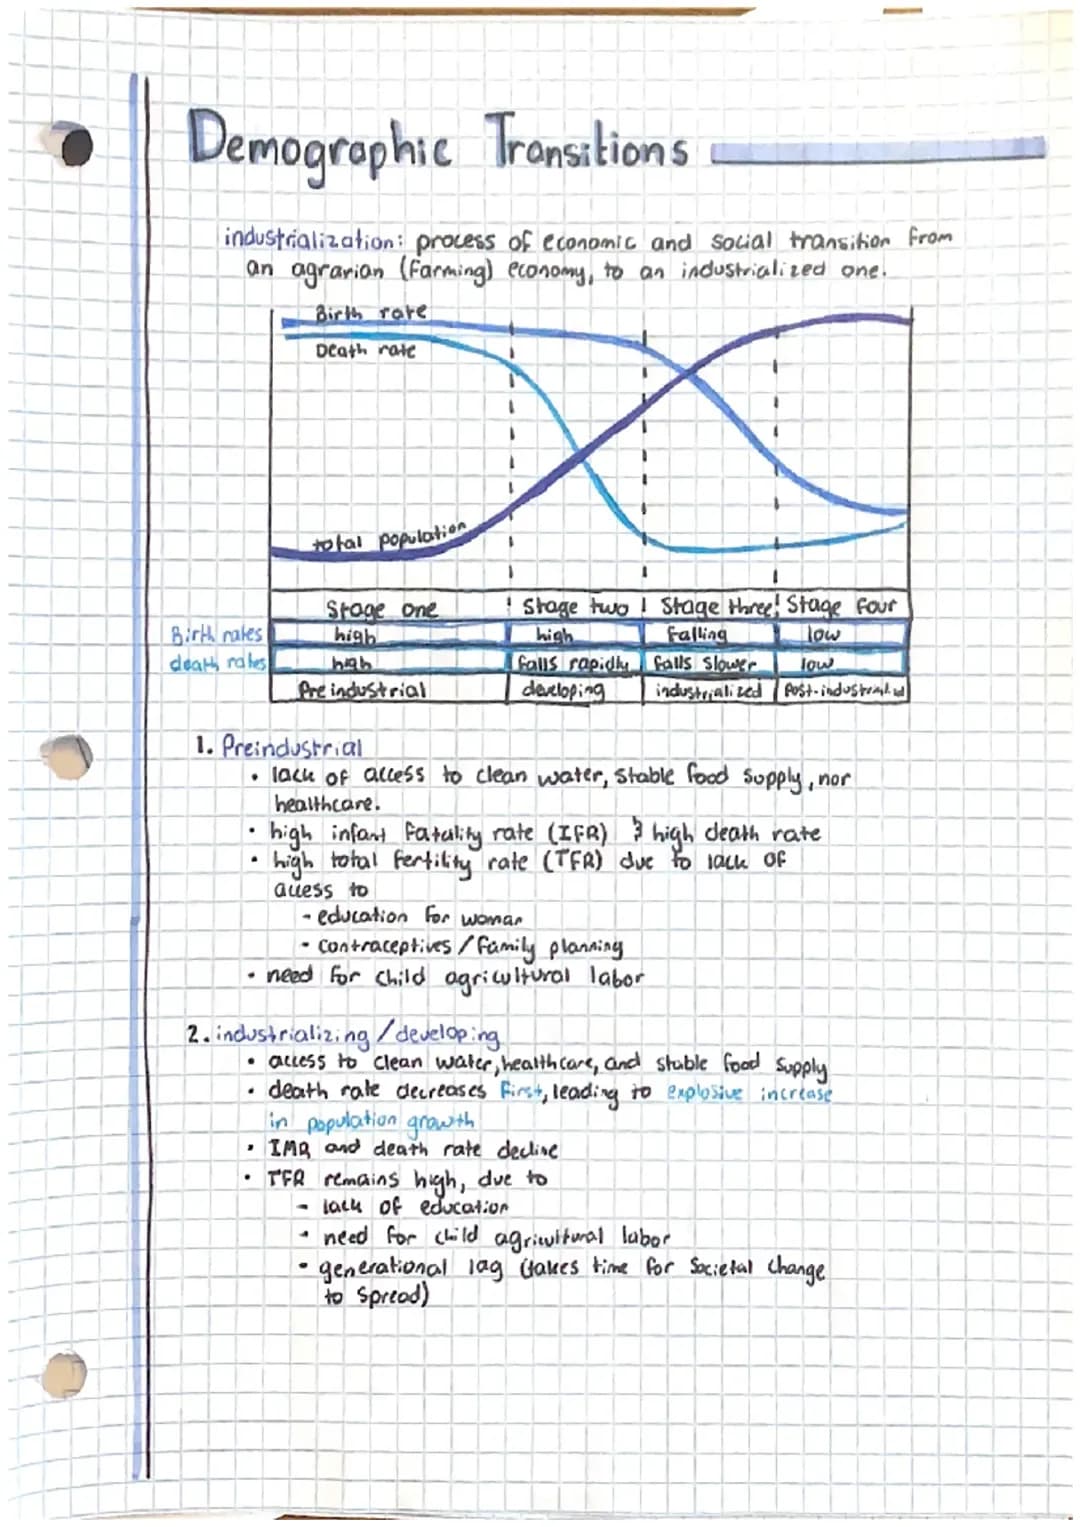 Demographic Transitions
industrialization: process of economic and social transition from
an agrarian (farming) economy, to an industrialized one.
Birth rate
Death rate
total population
Stage one Stage two Stage three Stage four
Birth rates high high falling low
death rates high falls rapidly falls slower low
Preindustrial developing industrialized Post-industrialized
1. Preindustrial
• lack of access to clean water, stable food supply, nor
healthcare.
• high infant fatality rate (IFR) & high death rate
• high total fertility rate (TFR) due to lack of
access to
- education for woman
- contraceptives / family planning
• need for child agricultural labor
2. industrializing / developing
• access to clean water, healthcare, and stable food supply
• death rate decreases first, leading to explosive increase
in population growth
• IMR and death rate decline
• TFR remains high, due to
- lack of education
- need for child agricultural labor
- generational lag (takes time for societal change
to spread)